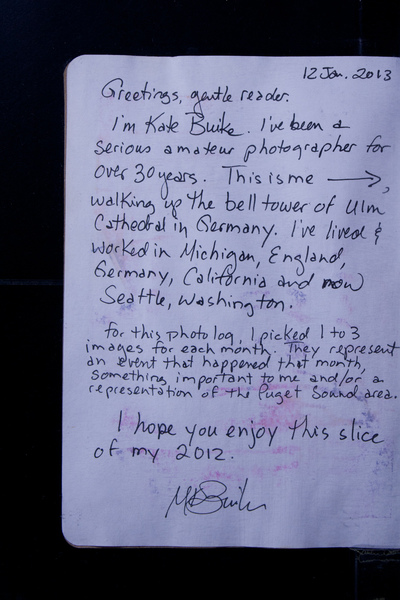 12 Jan. 2013
Greetings, gentle reader.
I'm Kate Buike. I've been a
serious amateur photographer for
over 30 years. This is me →,
walking up the bell tower of Ulm
Cathedral in Germany. I've lived &
worked in Michigan, England,
Germany, California and now
Seattle, Washington.
For this photo log, I picked 1 to 3
images for each month. They represent
an event that happened that month,
something important to me and/or a
representation of the Puget Sound area.
I hope you enjoy this slice
of my 2012.
MKBuike